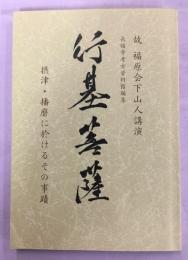 故 福原会下山人講演
長福寺考古資料館編集
行基菩薩
摂津・播磨に於けるその事蹟